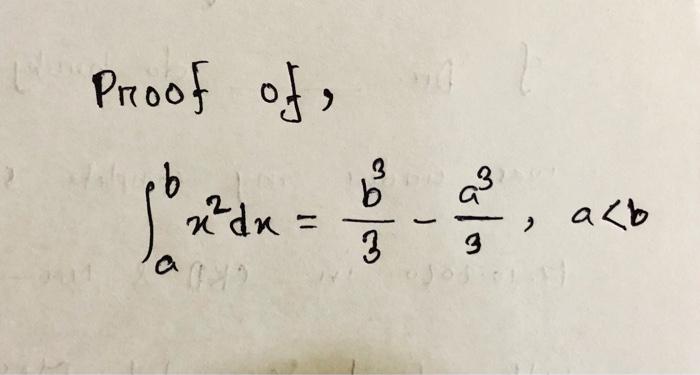 Proof of,
∫ₐᵇ x²dx = b³/3 - a³/3, a<b